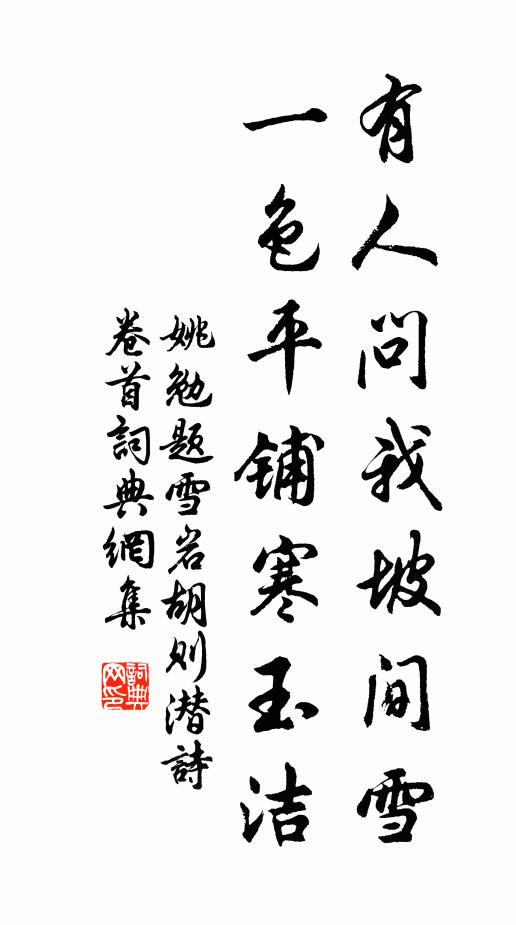 有人问我坡间雪
一色平铺寒玉洁
姚勉题雪岩胡则潜詩
卷首詞典網集
詞典
网印